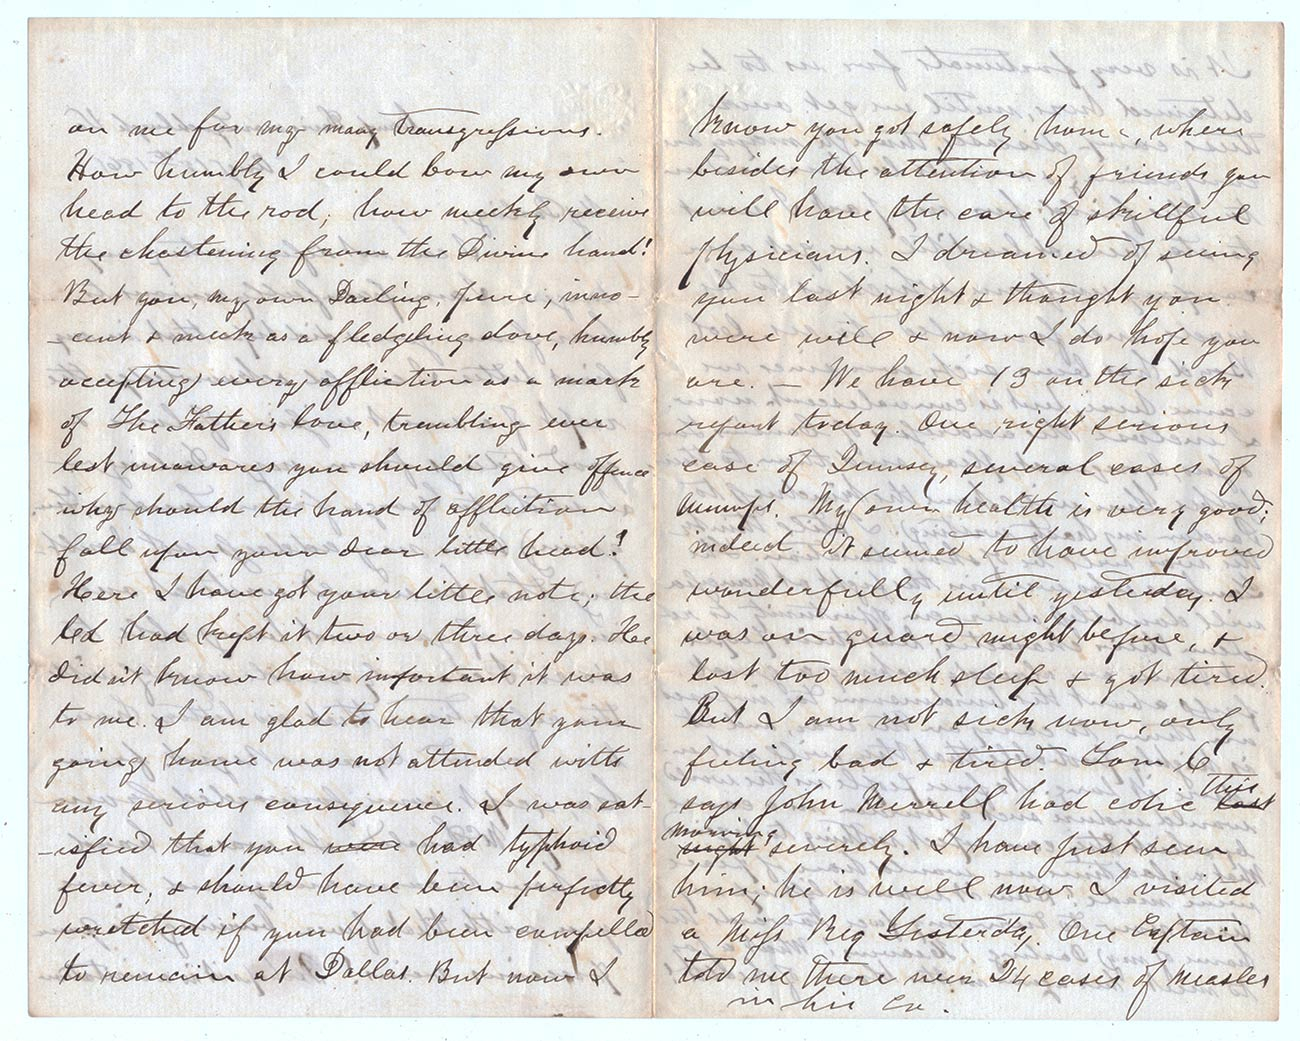 on me for my many transgressions.
How humbly I could bow my own
head to the rod; how meekly receive
the chastening from the Divine hand!
But you, my own Darling, pure, inno-
-cent & meek as a fledgling dove, humbly
accepting every affliction as a mark
of The Father's love, trembling ever
lest unawares you should give offence
why should the hand of affliction
fall upon your dear little head?
Here I have got your little note; the
had kept it two or three days. He
didn't know how important it was
to me. I am glad to hear that your
going home was not attended with
any serious consequence. I was sat-
-isfied that you were had typhoid
fever, & should have been perfectly
wretched if you had been compelled
to remain at Dallas. But now I
know you got safely home, where
besides the attention of friends you
will have the care of skillful
physicians. I dreamed of seeing
you last night & thought you
were well & now I do hope you
are. — We have 19 on the sick
report today. One right serious
case of Quinsey, several cases of
Mumps. My own health is very good;
indeed it seemed to have improved
wonderfully until yesterday. I
was on guard night before, &
lost too much sleep & got tired.
But I am not sick now, only
feeling bad & tired. Tom C
says John Merrell had colic last this
night morning severely. I have just seen
him; he is well now. I visited
a Miss Reg Yesterday. One Captain
told me there were 24 cases of measles
in his Co.